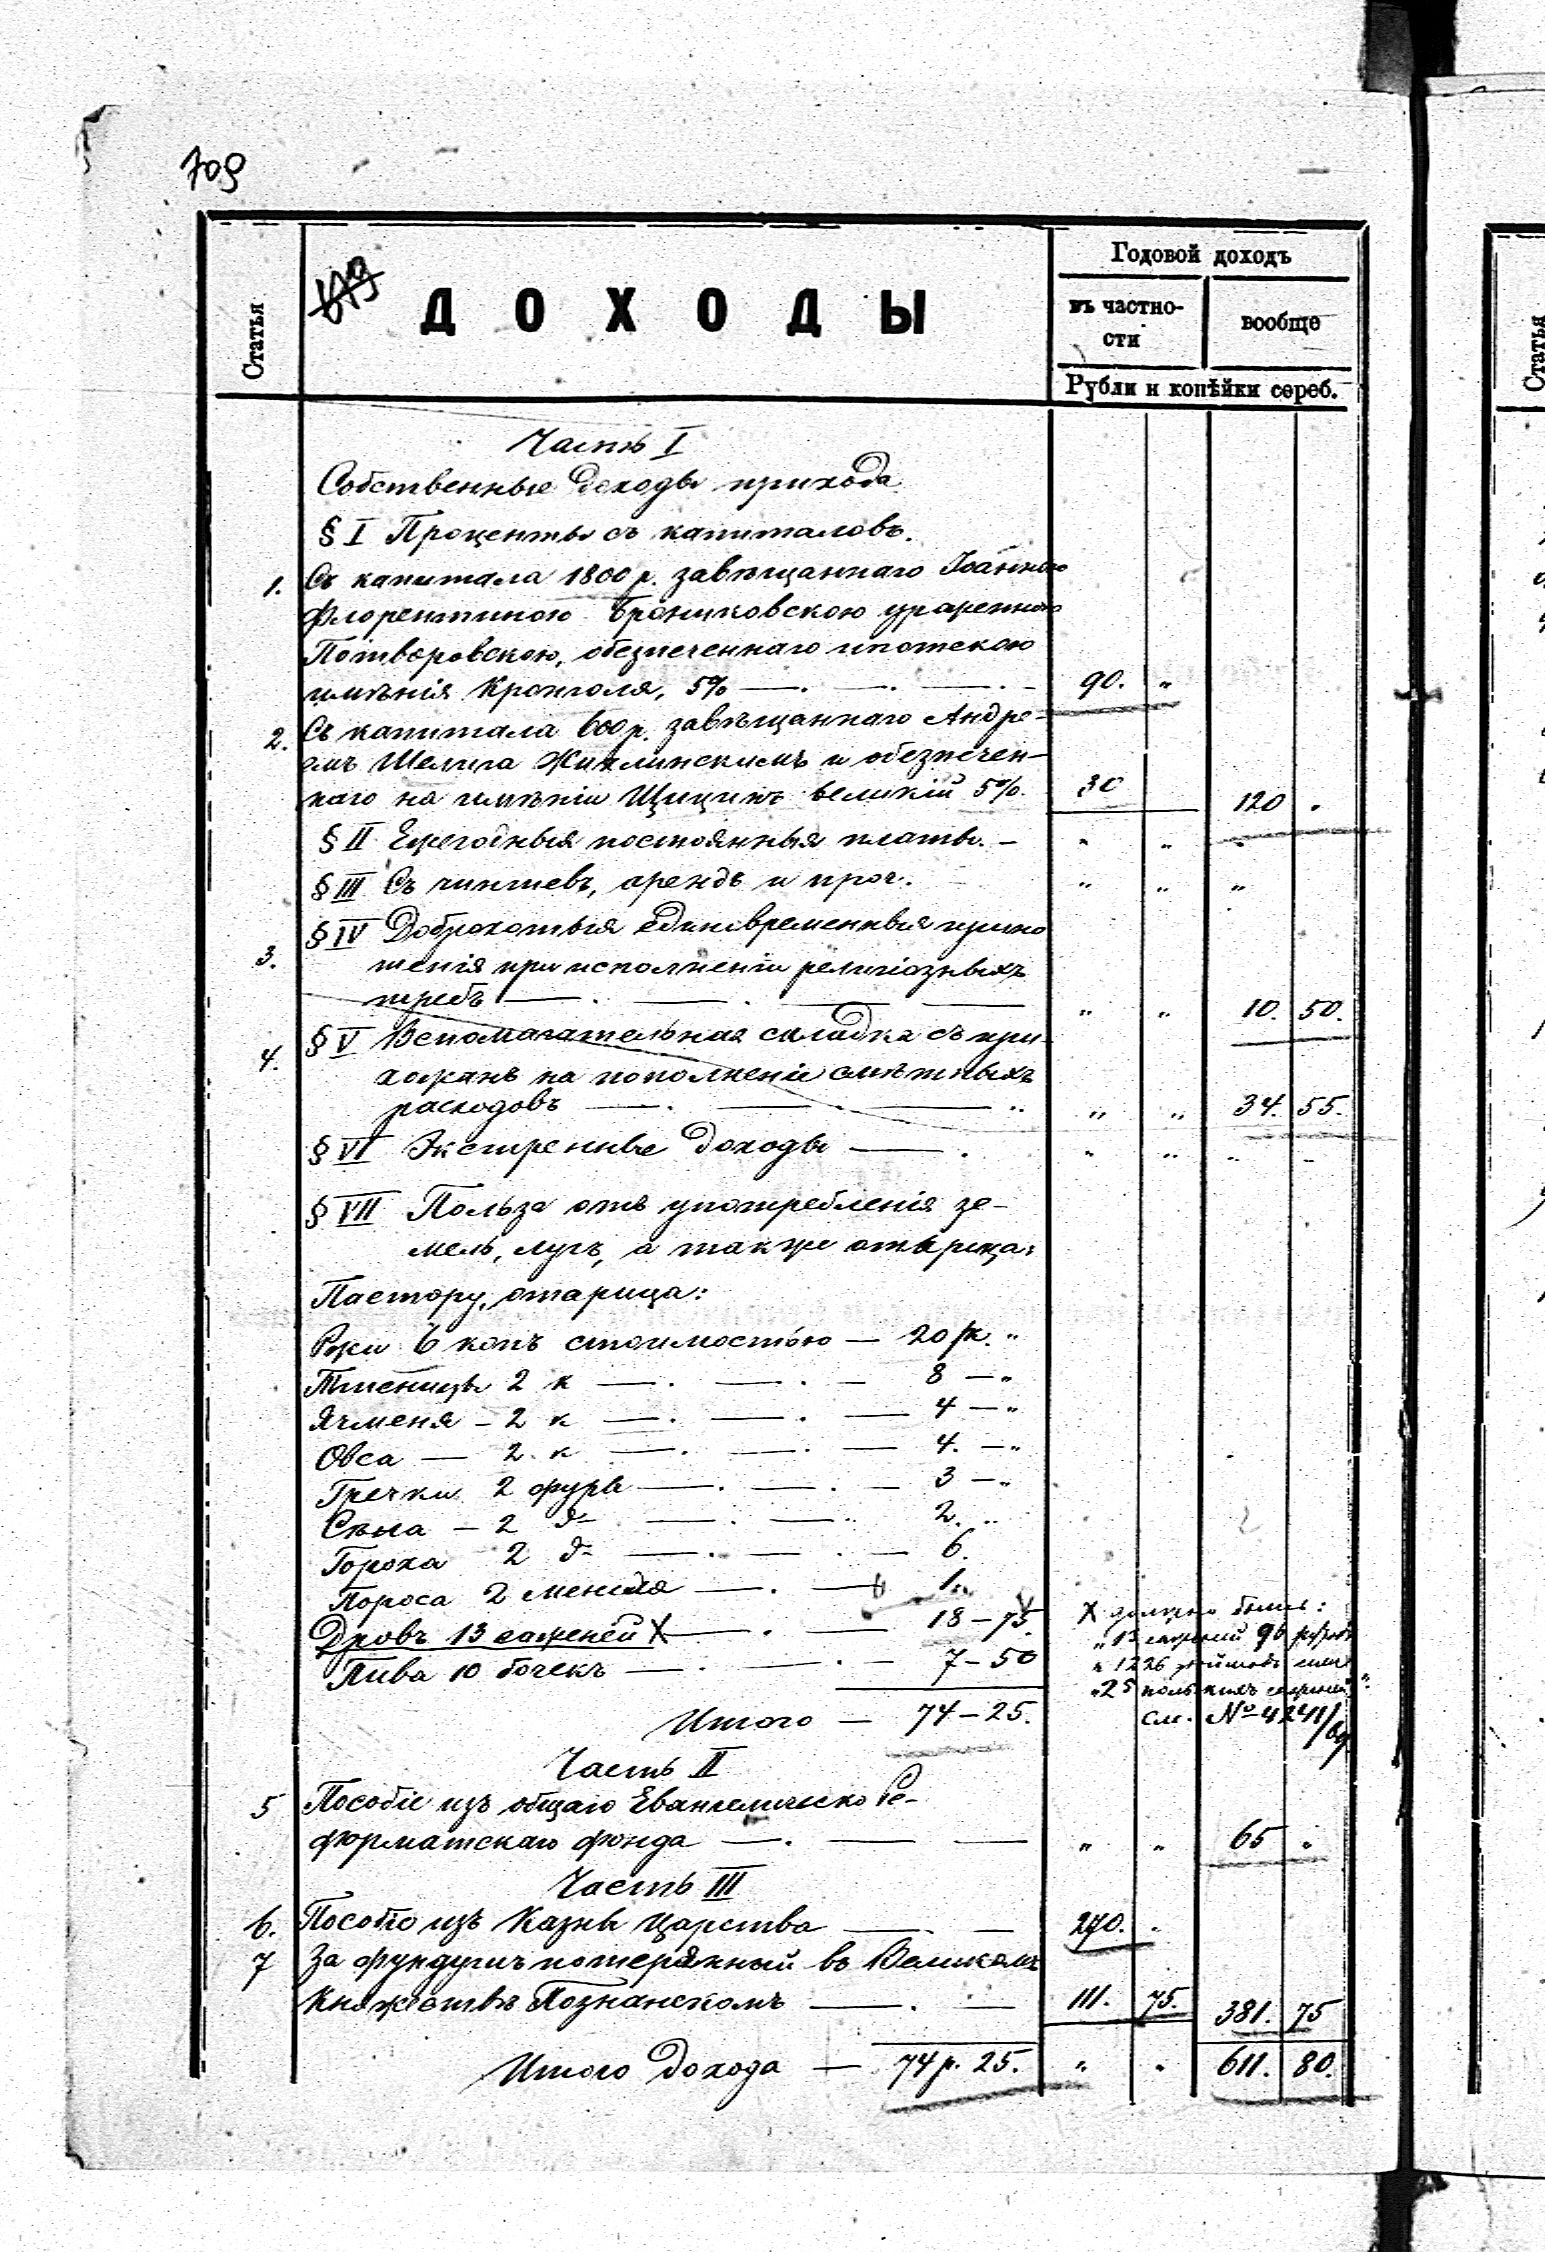 709
679
Статья
ДОХОДЫ
Годовой доходъ
въ частно-
сти
вообще
Рубли и копѣйки сереб.
Часть I
Собственные доходы прихода
§ I Проценты съ капиталовъ.
1. Съ капитала 1800 р. завѣщаннаго Іоанною
Флорентиною Брониковскою урожденною
Потворовскою, обезпеченнаго ипотекою
имѣнія Кронполя, 5% — 90. "
2. Съ капитала 600 р. завѣщаннаго Андре-
емъ Шелига Жихлинскимъ и обезпечен-
наго на имѣніи Щицинъ великій 5%. 30 120 "
§ II Ежегодныя постоянныя платы. — " " "
§ III Съ чиншевъ, арендъ и проч. " " "
3. § IV Доброхотныя единовременныя прино
шенія при исполненіи религіозныхъ
требъ — " " 10. 50.
4. § V Вспомагательная складка съ при-
хожанъ на пополненіе смѣтныхъ
расходовъ — " " 34. 55.
§ VI Экстренные доходы — " " " "
§ VII Польза отъ употребленія зе-
мель, лугъ, а также отарица:
Пастору, отарица:
Ржи 6 копъ стоимостью — 20 рк. "
Пшеницы 2 к — 8 — "
Ячменя — 2 к — 4 — "
Овса — 2 к — 4. — "
Гречки 2 фуры — 3 — "
Сѣна — 2 д — 2. "
Гороха 2 д — 6.
Пороса 2 — 1 "
Дровъ 13 саженей X — 18 — 75.
Пива 10 бочекъ — 7 — 50
X должно быть:
" 13 саженей 96
" 1226
" 25 польскихъ саженей".
см. № 4241/69
Итого — 74 — 25.
Часть II
5 Пособіе изъ общаго Евангелическо Ре-
форматскаго фонда — " " 65 "
Часть III
6. Пособіе изъ Казны Царства — 270. "
7 За фундушъ потерянный въ Великомъ
Княжествѣ Познанскомъ — 111. 75. 381. 75
Итого дохода — 74 р. 25. " " 611. 80.
Статья